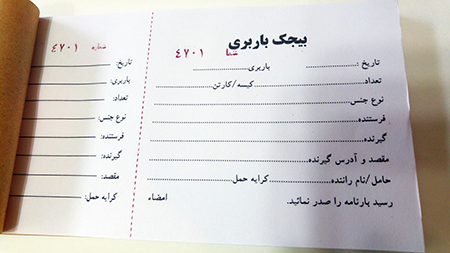 بیجک باربری
شما ٤٧٠١
تاریخ : باربری
تعداد کیسه/کارتن
نوع جنس
فرستنده
گیرنده
مقصد و آدرس گیرنده
حامل/نام راننده کرایه حمل
رسید بارنامه را صدر نمائید. امضاء
شماره ٤٧٠١
تاریخ:
باربری:
تعداد:
نوع جنس:
فرستنده:
گیرنده:
مقصد:
کرایه حمل: